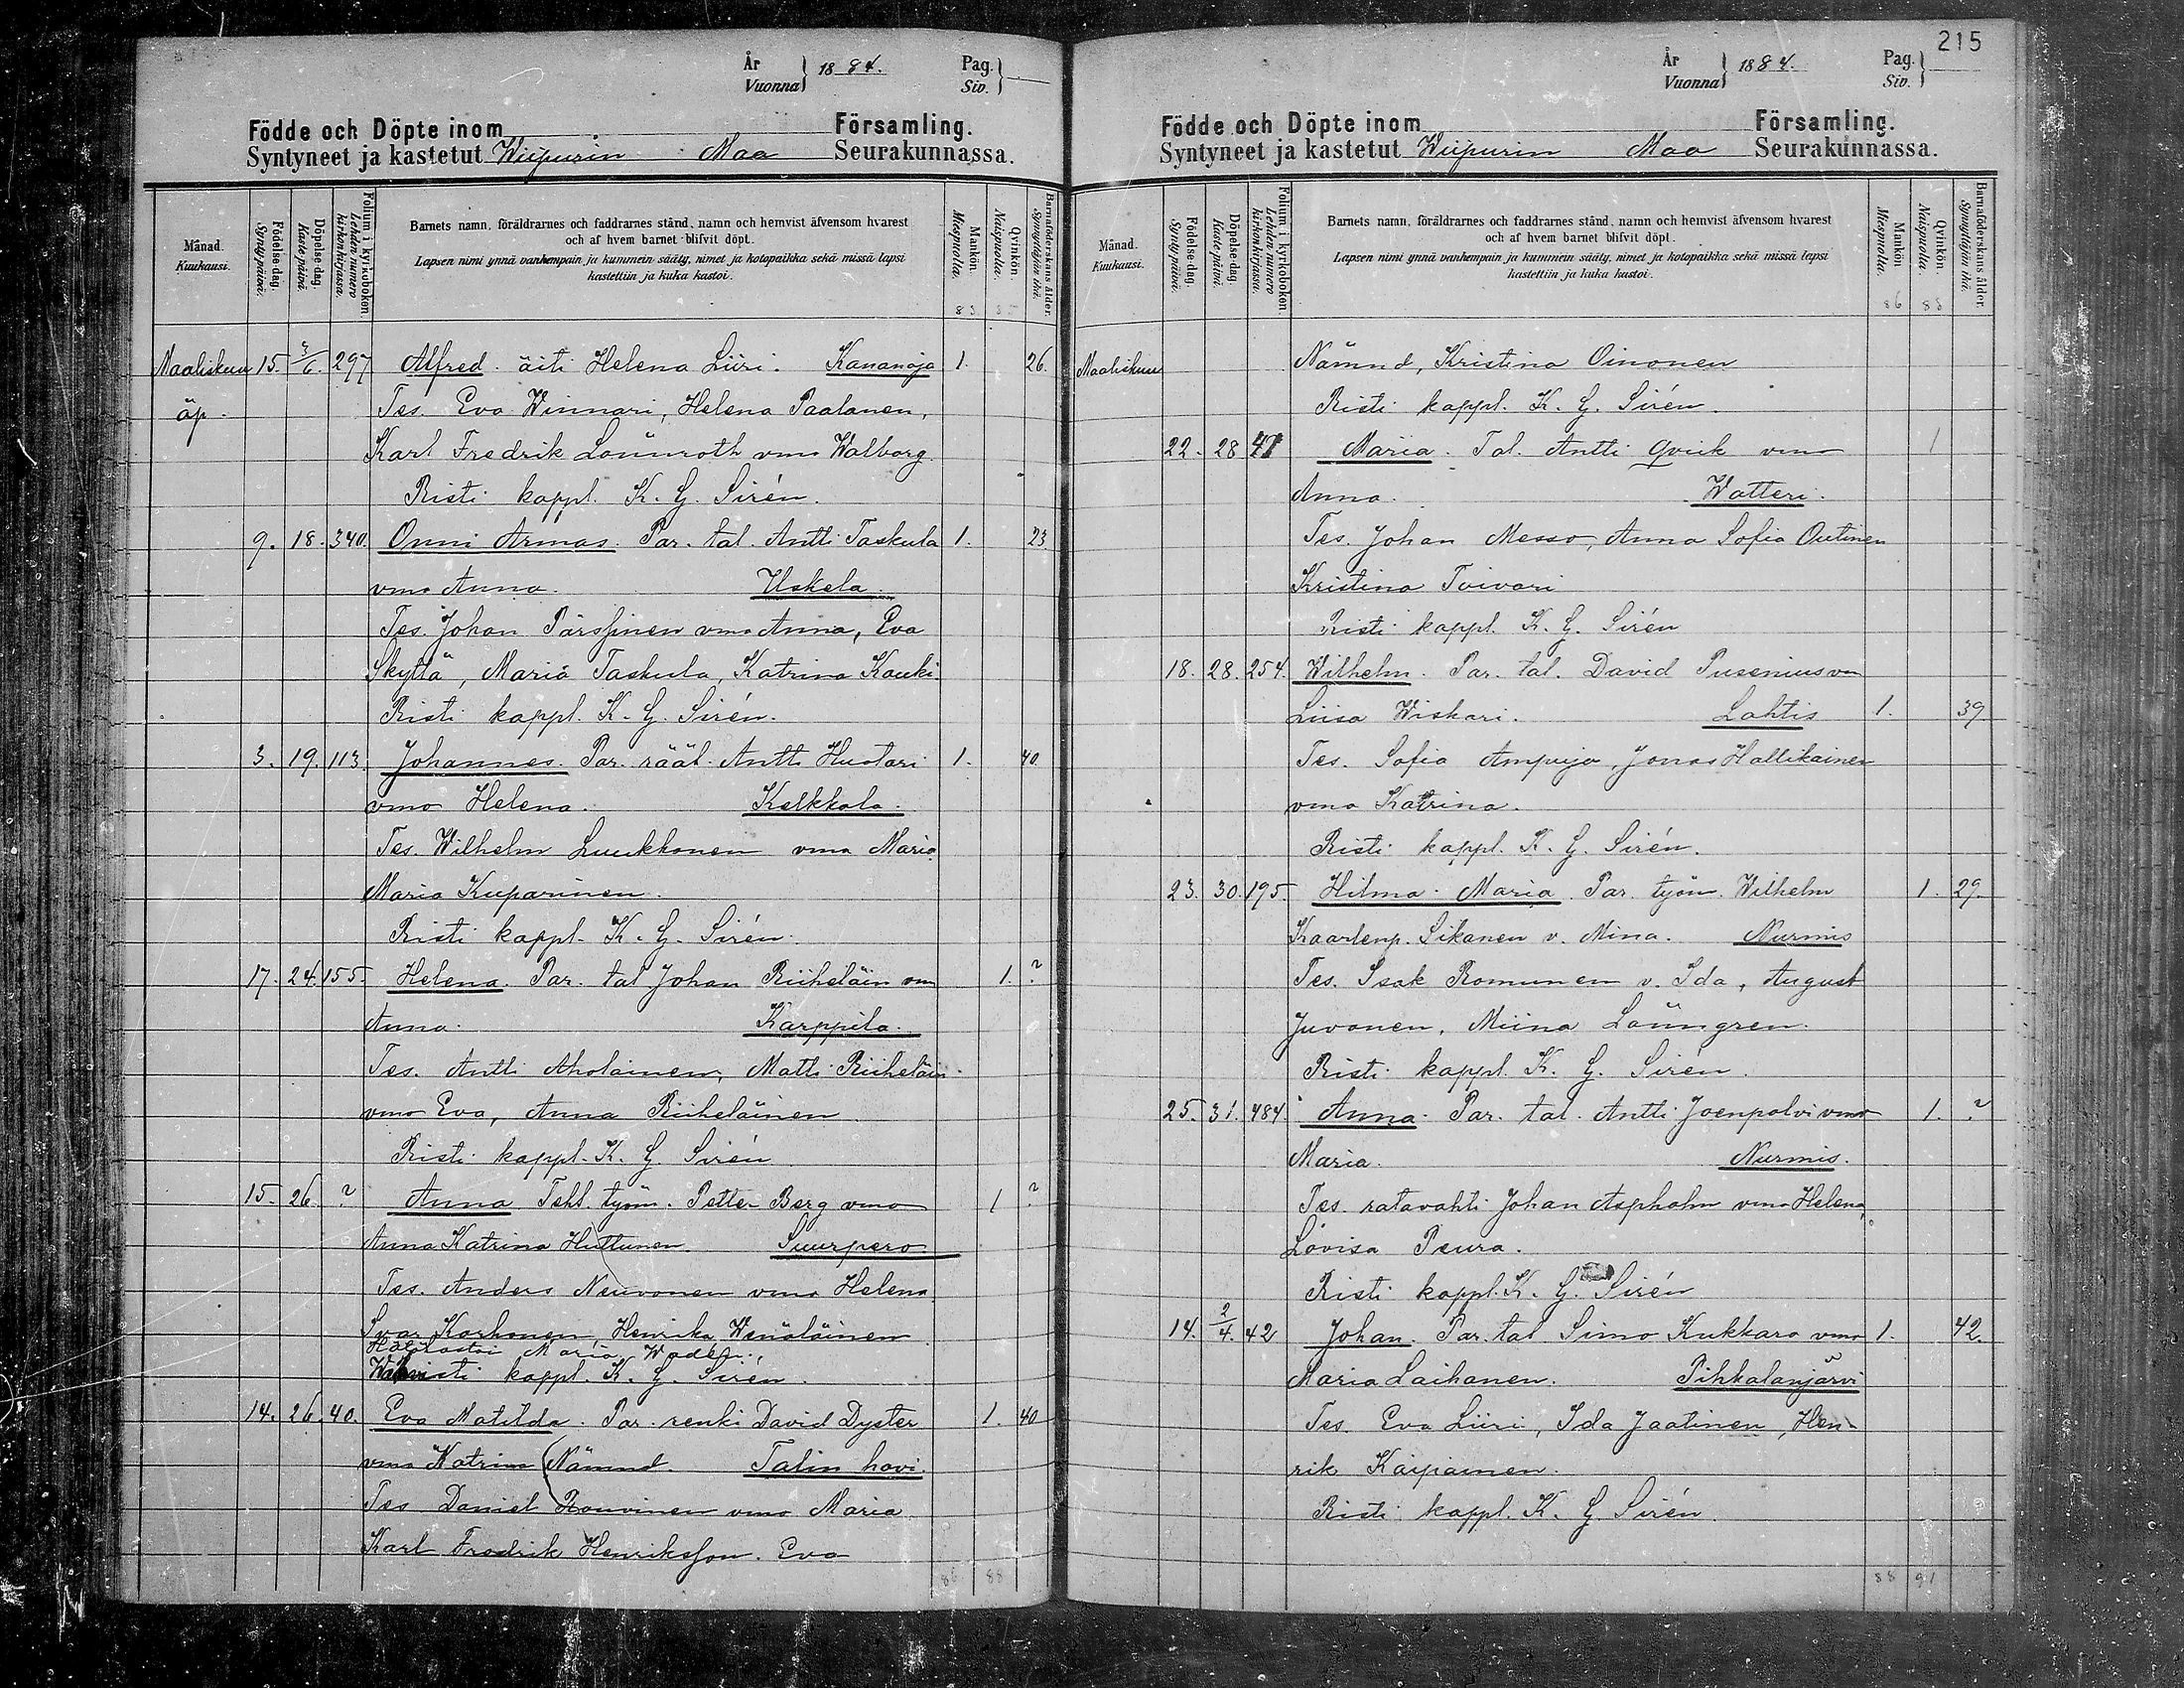 År
Vuonna } 1884. Pag.
Siv. }
Födde och Döpte inom Församling.
Syntyneet ja kastetut Wiipurin Maa Seurakunnassa.
Månad.
Kuukausi.
Födelse-dag.
Syntypäivä.
Döpelse-dag.
Kastepäivä.
Folium i kyrkoboken.
Lehden numero
kirkonkirjassa.
Barnets namn, föräldrarnes och faddrarnes stånd, namn och hemvist äfvensom hvarest
och af hvem barnet blifvit döpt.
Lapsen nimi ynnä vanhempain ja kummein sääty, nimet ja kotopaikka sekä missä lapsi
kastettiin ja kuka kastoi.
Mankön.
Miespuolia.
Qvinkön.
Naispuolia.
Barnaföderskans ålder.
Synnyttäjän ikä.
83 85
Maaliskuu 15. 3/6. 297 Alfred. äiti Helena Liiri. Kananoja 1. 26.
äp. Tes. Eva Winnari, Helena Paalanen,
Karl Fredrik Lönnroth vmo Walborg.
Risti kappl. K. G. Sirén.
9. 18. 340. Onni Armas. Par. tal. Antti Taskula 1. 23
vmo Anna. Uskela.
Tes. Johan Pärssinen vmo Anna, Eva
Skyttä, Maria Taskula, Katrina Kauki.
Risti kappl. K. G. Sirén.
3. 19. 113. Johannes. Par. räät. Antti Huotari 1. 40
vmo Helena. Kelkkala.
Tes. Wilhelm Luukkonen vmo Maria
Maria Kuparinen.
Risti kappl. K. G. Sirén.
17. 24. 155. Helena. Par. tal Johan Riiheläin vm 1. ?
Anna. Karppila.
Tes. Antti Aholainen, Matti Riiheläin
vmo Eva, Anna Riiheläinen
Risti kappl. K. G. Sirén
15. 26. ? Anna Teht. työm. Petter Berg vmo 1 ?
Anna Katrina Huttunen. Suurpero
Tes. Anders Neuvonen vmo Helena
Ivar Korhonen, Henrika Wenäläinen
Maria
risti kappl. K. G. Sirén.
14. 26. 40. Eva Matilda. Par. renki David Dyster 1. 40
vmo Katrina Nämnd. Talin hovi.
Tes Daniel Rouvinen vmo Maria
Karl Fredrik Henriksson. Eva
86 88
215
År
Vuonna } 1884. Pag.
Siv. }
Födde och Döpte inom Församling.
Syntyneet ja kastetut Wiipurin Maa Seurakunnassa.
Månad.
Kuukausi.
Födelse-dag.
Syntypäivä.
Döpelse-dag.
Kastepäivä.
Folium i kyrkoboken.
Lehden numero
kirkonkirjassa.
Barnets namn, föräldrarnes och faddrarnes stånd, namn och hemvist äfvensom hvarest
och af hvem barnet blifvit döpt.
Lapsen nimi ynnä vanhempain ja kummein sääty, nimet ja kotopaikka sekä missä lapsi
kastettiin ja kuka kastoi.
Mankön.
Miespuolia.
Qvinkön.
Naispuolia.
Barnaföderskans ålder.
Synnyttäjän ikä.
86 88
Maaliskuu Nämnd, Kristina Oinonen
Risti kappl. K. G. Sirén.
22. 28 47 Maria. Tal. Antti Qvick vmo 1
Anna. Watteri.
Tes. Johan Messo, Anna Sofia Outinen
Kristina Toivari
Risti kappl. K. G. Sirén
18. 28. 254. Wilhelm. Par. tal. David Pusenius vm
Liisa Wiskari. Lahtis 1. 39
Tes. Sofia Ampuja, Jonas Hallikainen
vmo Katrina.
Risti kappl. K. G. Sirén.
23. 30. 195. Hilma Maria. Par. työm. Wilhelm 1. 29.
Kaarlenp. Sikanen v. Mina. Nurmis
Tes. Isak Romunen v. Ida, August
Juvonen, Miina Lönngren.
Risti kappl. K. G. Sirén.
25. 31. 484 Anna. Par. tal. Antti Joenpolvi vmo 1. ?
Maria. Nurmis.
Tes. ratavahti Johan Aspholm vmo Helena,
Lovisa Peura.
Risti kappl. K. G. Sirén
14. 2/4. 42 Johan. Par. tal Simo Kukkaro vmo 1. 42.
Maria Laihanen. Pihkalanjärvi
Tes. Eva Liiri, Ida Jaatinen, Hen-
rik Kaipainen.
Risti kappl. K. G. Sirén.
88 91